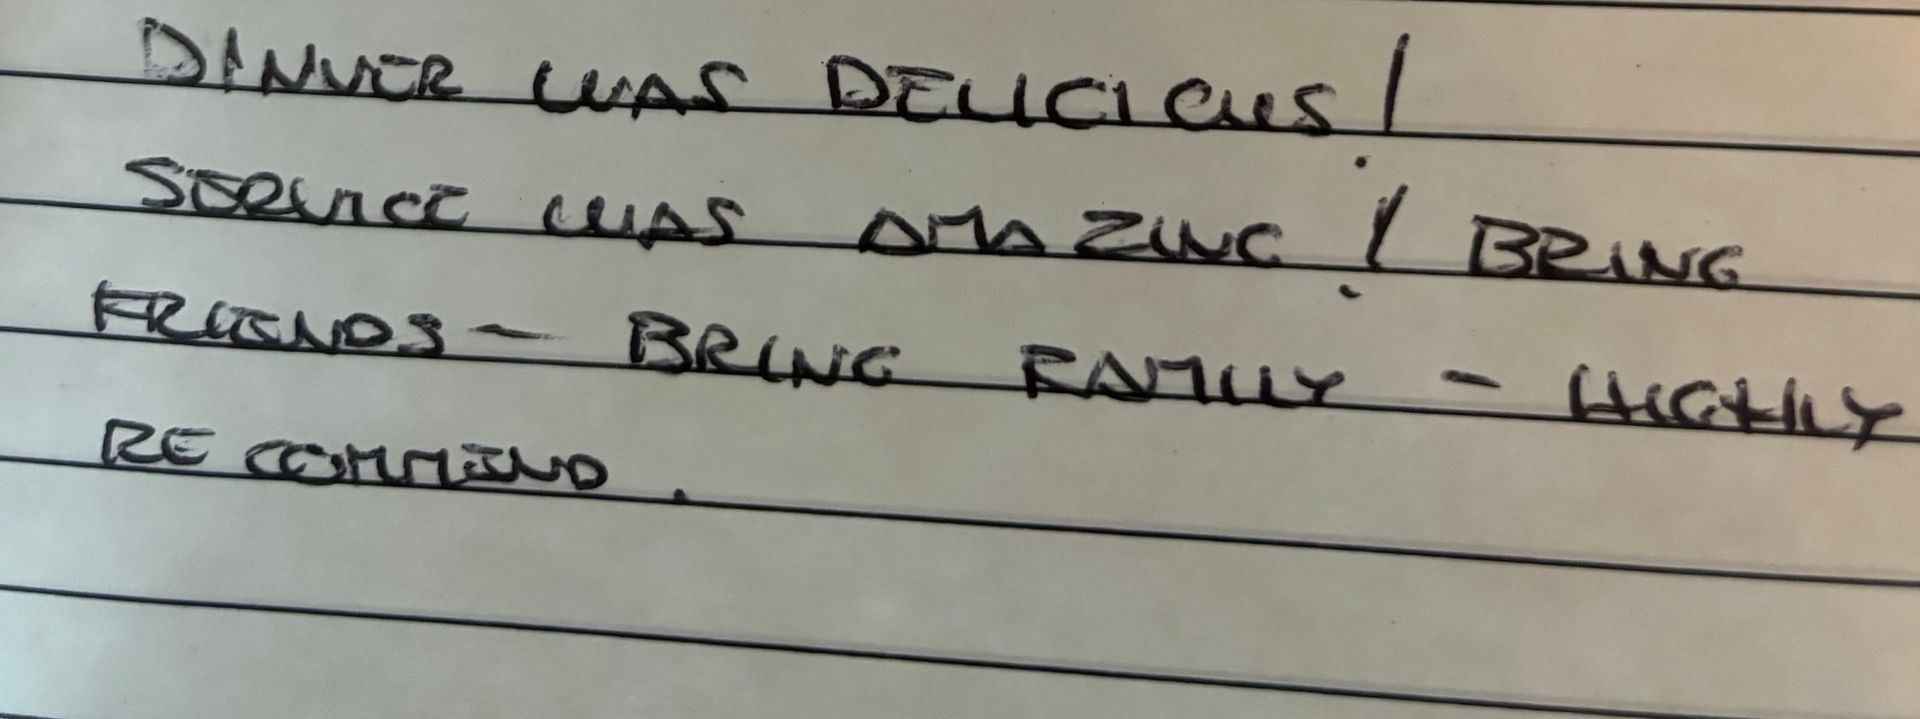 DINNER WAS DELICIOUS!
SERVICE WAS AMAZING! BRING
FRIENDS - BRING FAMILY - HIGHLY
RECOMMEND.